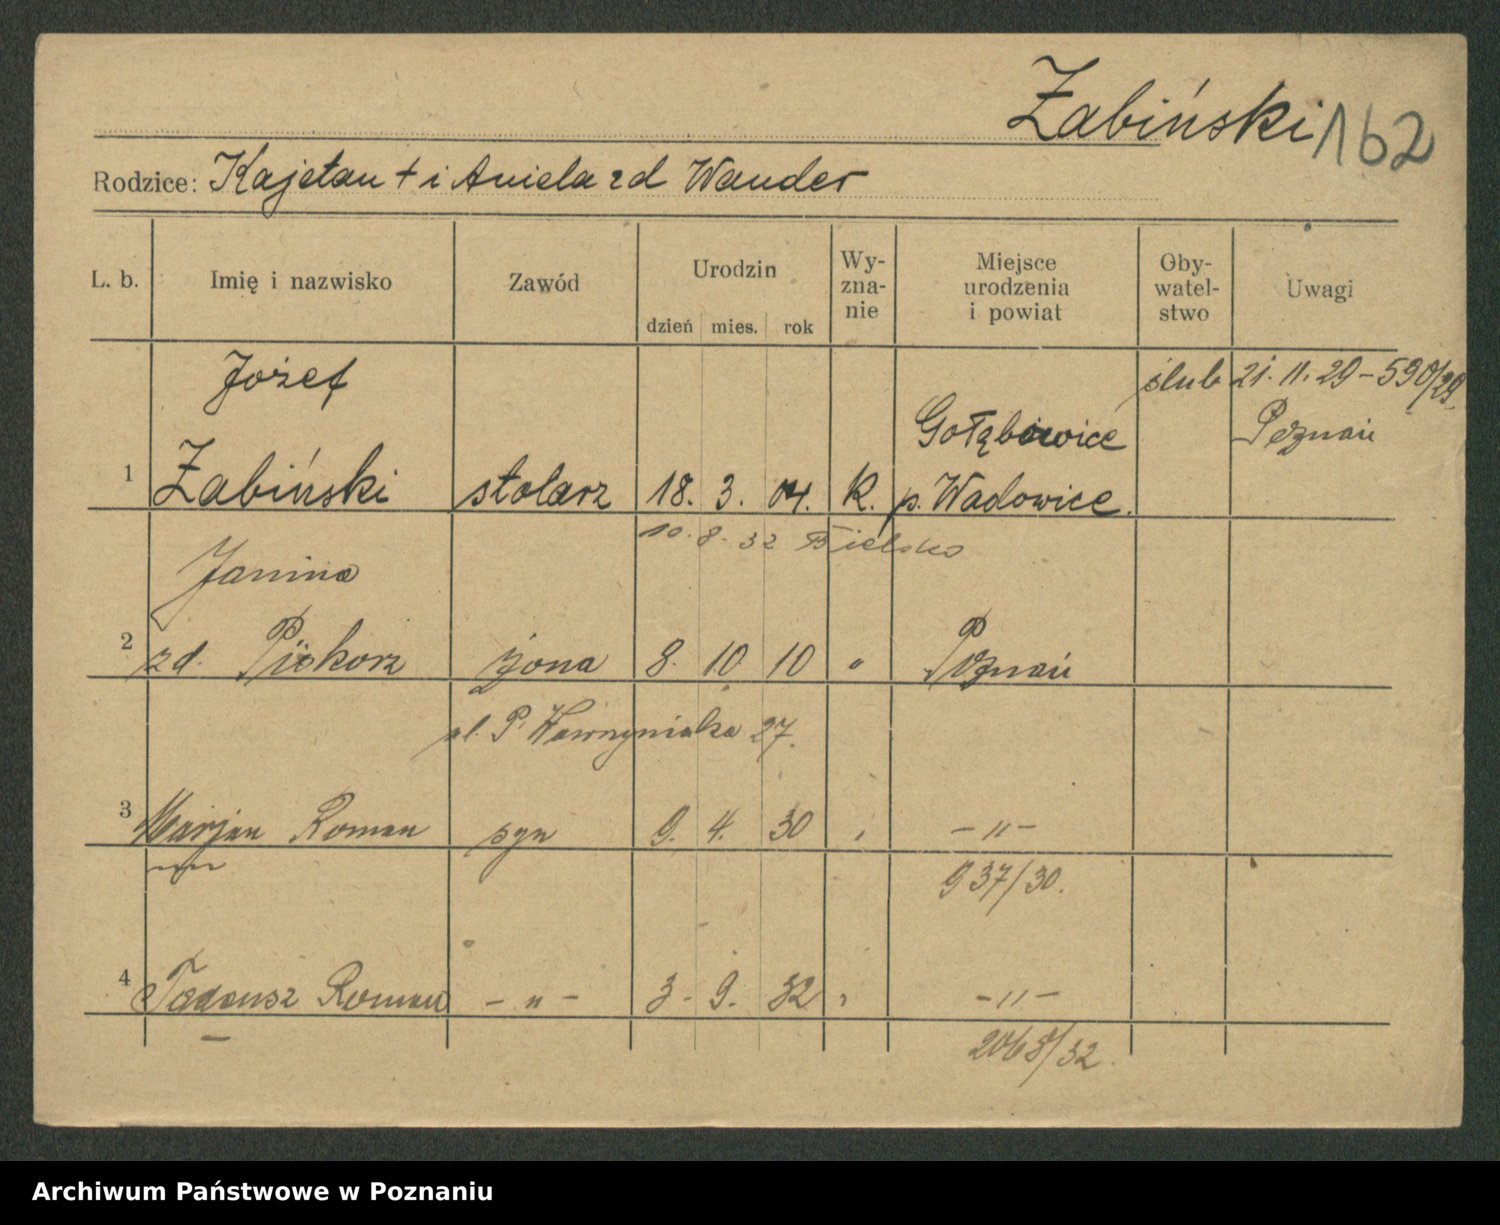 Żabiński 162
Rodzice: Kajetan + i Aniela zd Wander
L. b. Imię i nazwisko Zawód Urodzin dzień mies. rok Wy- zna- nie Miejsce urodzenia i powiat Oby- watel- stwo Uwagi
Józef ślub 21. 11. 29 – 590/29
Gołębiowice Poznań
1 Żabiński stolarz 18. 3. 04. K. p. Wadowice.
10. 8. 32 Bielsko
Janina
2 zd. Piskorz żona 8. 10 10 " Poznań
ul. P. Wawrzyniaka 27.
3 Marjan Roman syn 9. 4. 30 " – " –
937/30.
4 Tadeusz Roman – " – 3. 9. 32 " – " –
2068/32.
Archiwum Państwowe w Poznaniu